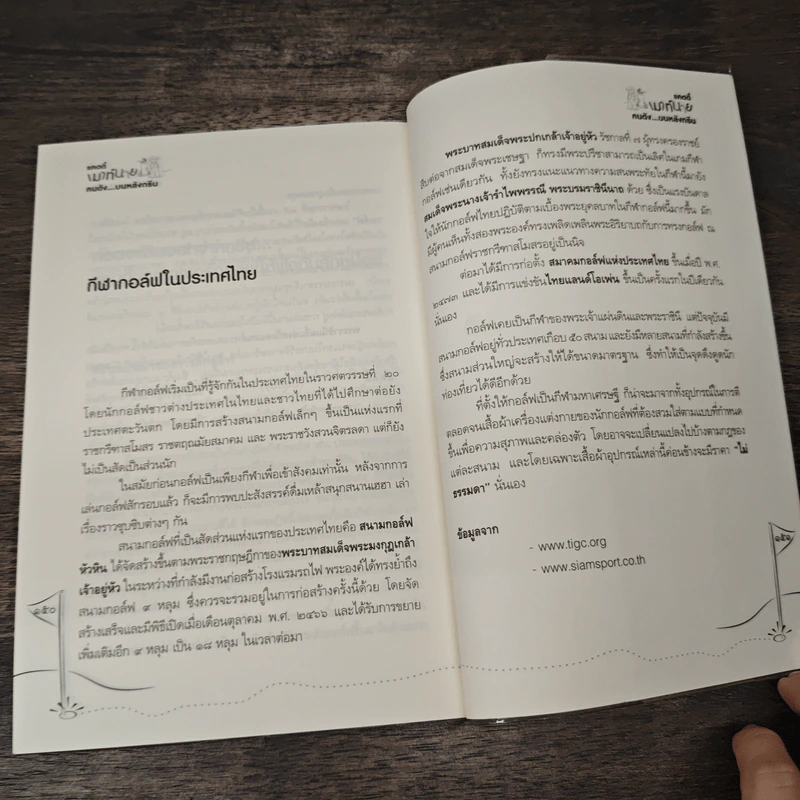 แคดดี้
เมาท์นาย
คนดัง...บนหลังกรีน
กีฬากอล์ฟในประเทศไทย
กีฬากอล์ฟเริ่มเป็นที่รู้จักกันในประเทศไทยในราวศตวรรษที่ ๒๐
โดยนักกอล์ฟชาวต่างประเทศในไทยและชาวไทยที่ได้ไปศึกษาต่อยัง
ประเทศตะวันตก โดยมีการสร้างสนามกอล์ฟเล็กๆ ขึ้นเป็นแห่งแรกที่
ราชกรีฑาสโมสร ราชตฤณมัยสมาคม และ พระราชวังสวนจิตรลดา แต่ก็ยัง
ไม่เป็นสัดเป็นส่วนนัก
ในสมัยก่อนกอล์ฟเป็นเพียงกีฬาเพื่อเข้าสังคมเท่านั้น หลังจากการ
เล่นกอล์ฟสักรอบแล้ว ก็จะมีการพบปะสังสรรค์ดื่มเหล้าสนุกสนานเฮฮา เล่า
เรื่องราวซุบซิบต่างๆ กัน
สนามกอล์ฟที่เป็นสัดส่วนแห่งแรกของประเทศไทยคือ สนามกอล์ฟ
หัวหิน ได้จัดสร้างขึ้นตามพระราชกฤษฎีกาของพระบาทสมเด็จพระมงกุฎเกล้า
เจ้าอยู่หัว ในระหว่างที่กำลังมีงานก่อสร้างโรงแรมรถไฟ พระองค์ได้ทรงย้ำถึง
สนามกอล์ฟ ๙ หลุม ซึ่งควรจะรวมอยู่ในการก่อสร้างครั้งนี้ด้วย โดยจัด
สร้างเสร็จและมีพิธีเปิดเมื่อเดือนตุลาคม พ.ศ. ๒๔๖๖ และได้รับการขยาย
เพิ่มเติมอีก ๙ หลุม เป็น ๑๘ หลุม ในเวลาต่อมา
๑๕๐
แคดดี้
เมาท์นาย
คนดัง...บนหลังกรีน
พระบาทสมเด็จพระปกเกล้าเจ้าอยู่หัว รัชกาลที่ ๗ ผู้ทรงครองราชย์
สืบต่อจากสมเด็จพระเชษฐา ก็ทรงมีพระปรีชาสามารถเป็นเลิศในเกมกีฬา
กอล์ฟเช่นเดียวกัน ทั้งยังทรงแนะแนวทางความสนพระทัยในกีฬานี้มายัง
สมเด็จพระนางเจ้ารำไพพรรณี พระบรมราชินีนาถ ด้วย ซึ่งเป็นแรงบันดาล
ใจให้นักกอล์ฟไทยปฏิบัติตามเบื้องพระยุคลบาทในกีฬากอล์ฟนี้มากขึ้น มัก
มีผู้คนเห็นทั้งสองพระองค์ทรงเพลิดเพลินพระอิริยาบถกับการทรงกอล์ฟ ณ
สนามกอล์ฟราชกรีฑาสโมสรอยู่เป็นนิจ
ต่อมาได้มีการก่อตั้ง สมาคมกอล์ฟแห่งประเทศไทย ขึ้นเมื่อปี พ.ศ.
๒๔๗๓ และได้มีการแข่งขันไทยแลนด์โอเพ่น ขึ้นเป็นครั้งแรกในปีเดียวกัน
นั่นเอง
กอล์ฟเคยเป็นกีฬาของพระเจ้าแผ่นดินและพระราชินี แต่ปัจจุบันมี
สนามกอล์ฟอยู่ทั่วประเทศเกือบ ๕๐ สนาม และยังมีหลายสนามที่กำลังสร้างขึ้น
ซึ่งสนามส่วนใหญ่จะสร้างให้ได้ขนาดมาตรฐาน ซึ่งทำให้เป็นจุดดึงดูดนัก
ท่องเที่ยวได้ดีอีกด้วย
ที่ตั้งให้กอล์ฟเป็นกีฬามหาเศรษฐี ก็น่าจะมาจากทั้งอุปกรณ์ในการตี
ตลอดจนเสื้อผ้าเครื่องแต่งกายของนักกอล์ฟที่ต้องสวมใส่ตามแบบที่กำหนด
ขึ้นเพื่อความสุภาพและคล่องตัว โดยอาจจะเปลี่ยนแปลงไปบ้างตามกฎของ
แต่ละสนาม และโดยเฉพาะเสื้อผ้าอุปกรณ์เหล่านี้ค่อนข้างจะมีราคา "ไม่
ธรรมดา" นั่นเอง
ข้อมูลจาก
- www.tigc.org
- www.siamsport.co.th
๑๕๑